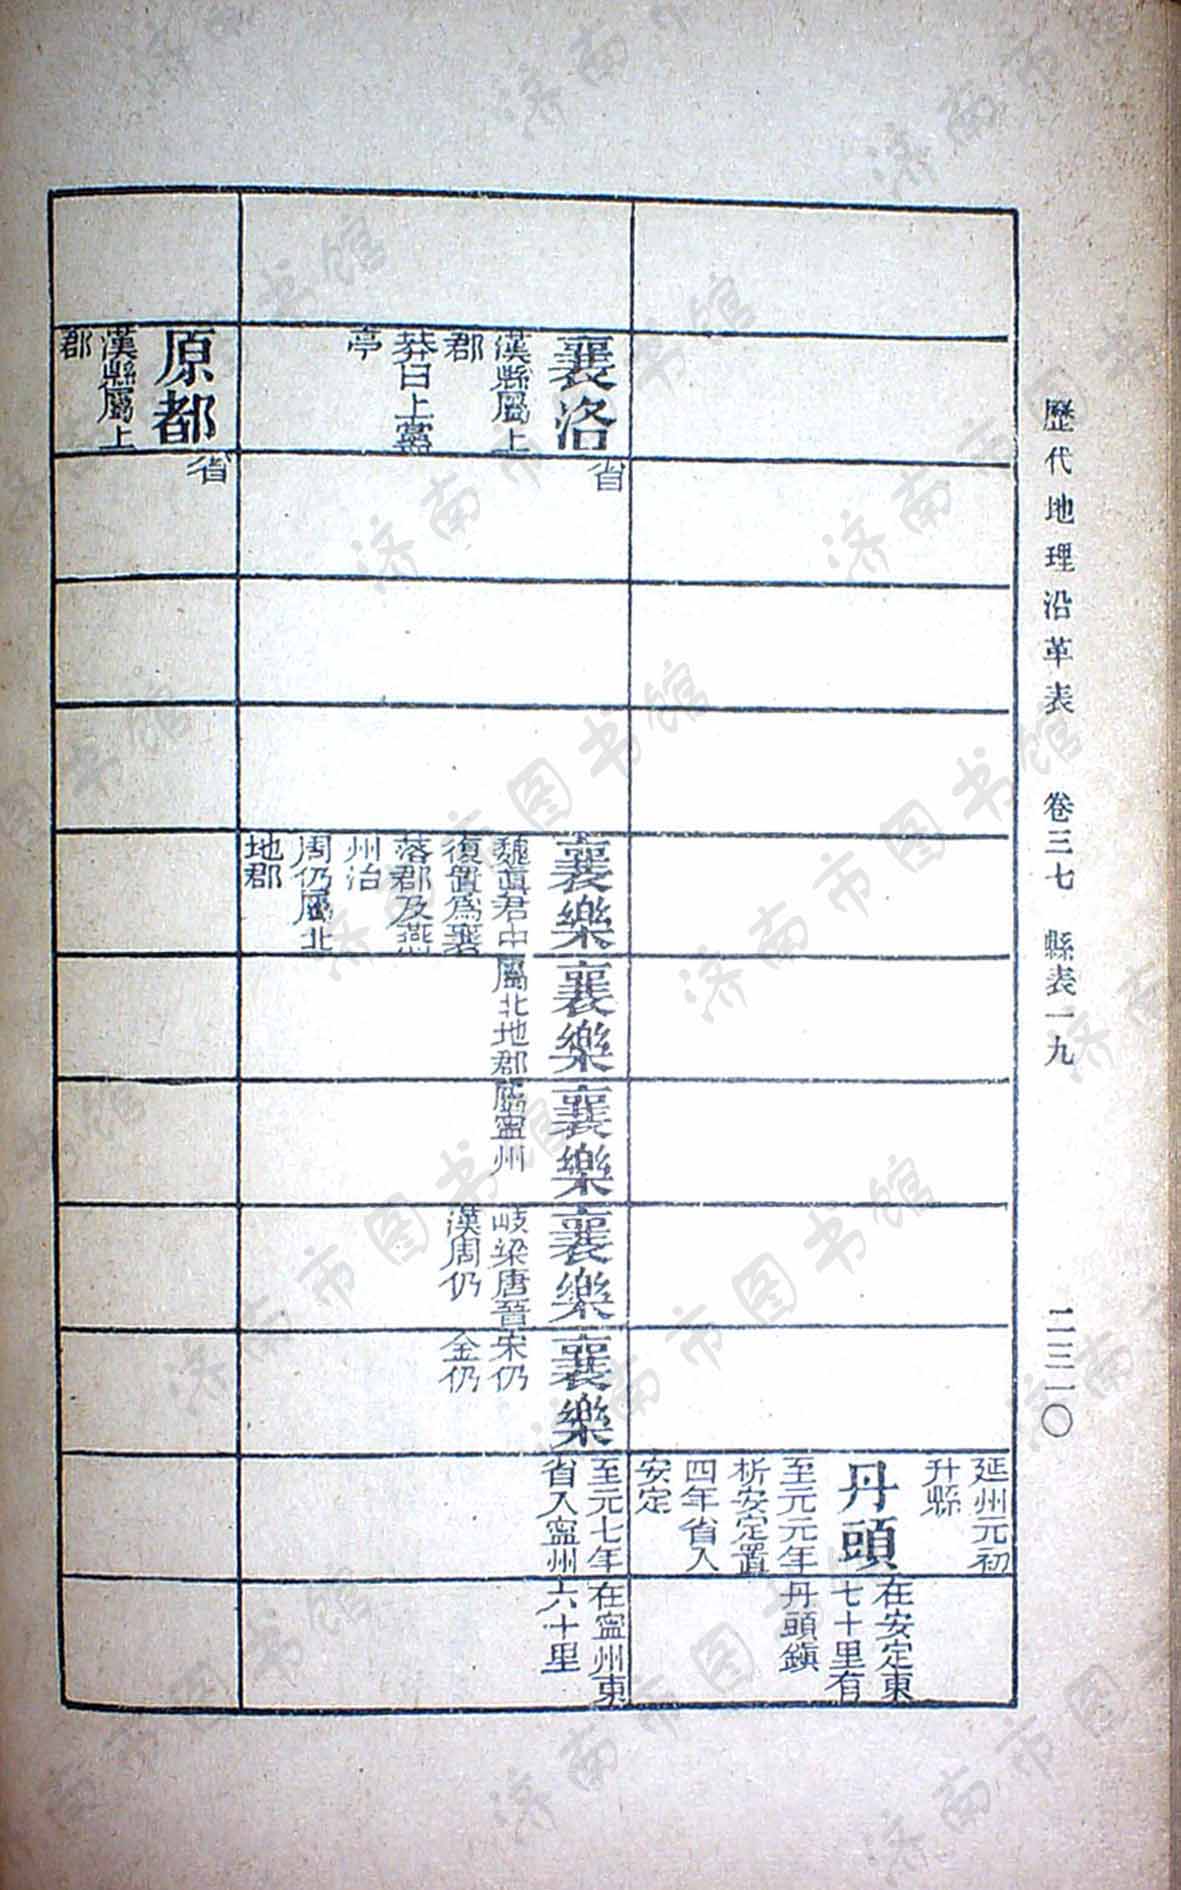 歷代地理沿革表　卷三七　縣表一九　二三一〇
延州元初
升縣
丹頭
至元元年
析安定置
四年省入
安定
在安定東
七十里有
丹頭鎮
襄洛
漢縣屬上
郡
莽曰上黨
亭
省
襄樂
魏真君中
復置為襄
落郡及燕
州治
周仍屬北
地郡
襄樂
屬北地郡
襄樂
屬寧州
襄樂
岐梁唐晉
漢周仍
襄樂
宋仍
金仍
至元七年
省入寧州
在寧州東
六十里
原都
漢縣屬上
郡
省
济南市图书馆